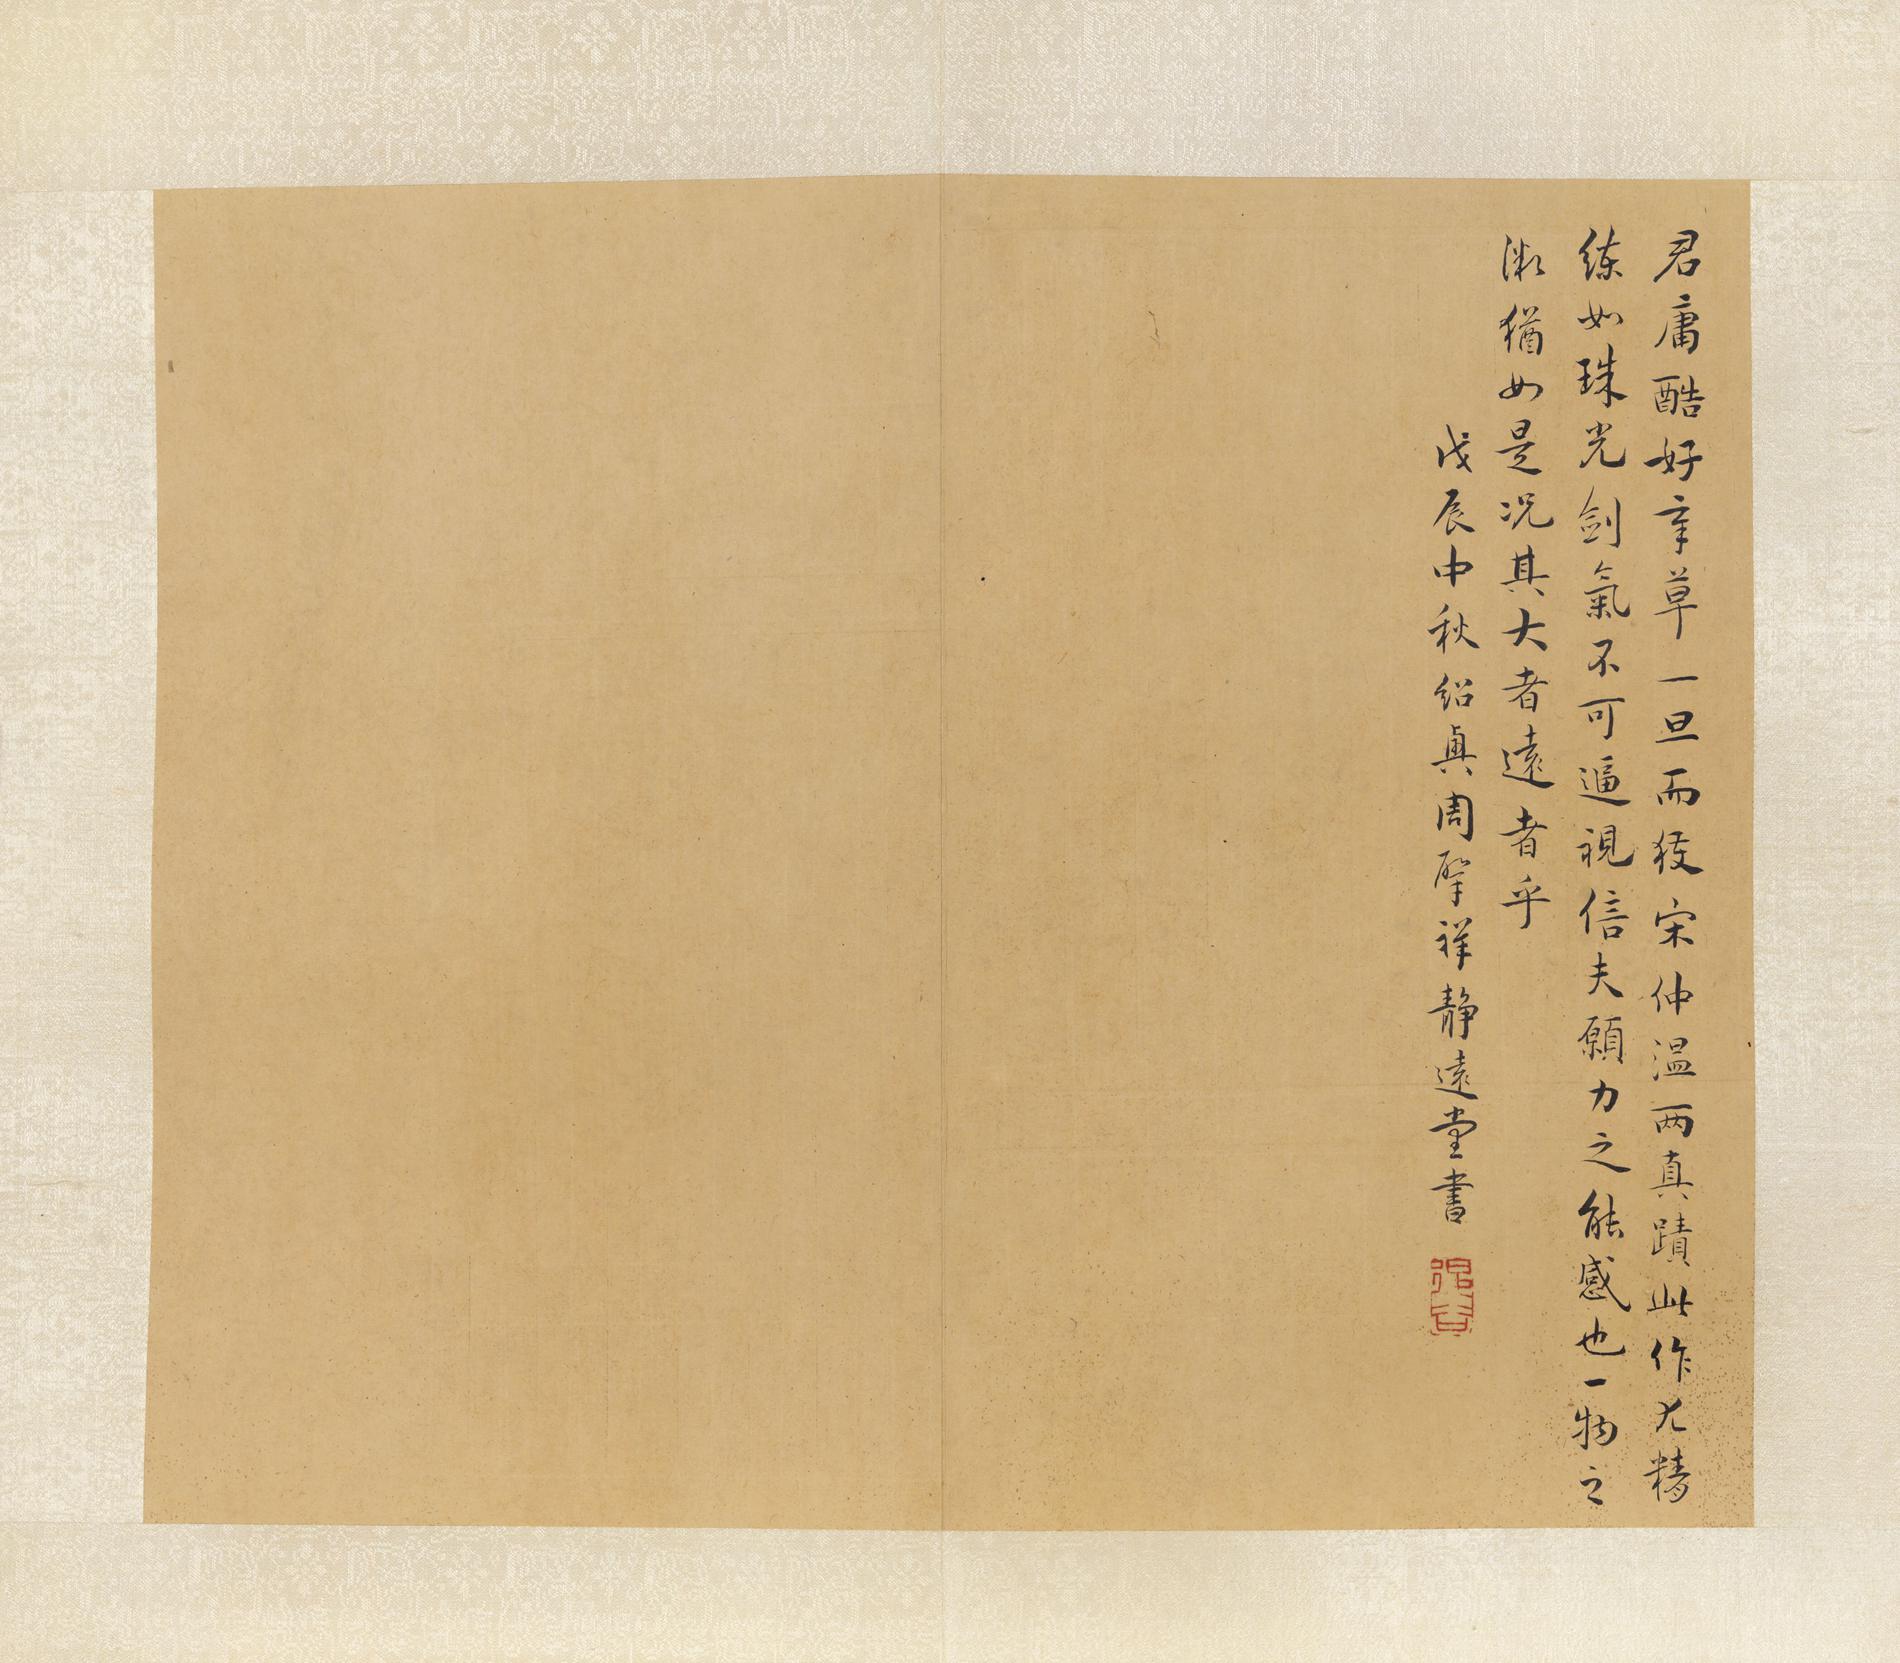 君庸酷好章草一旦而獲宋仲温两真蹟此作尤精
练如珠光劍氣不可逼視信夫願力之能感也一物之
微猶如是况其大者遠者乎
戊辰中秋紹興周肇祥静遠堂書